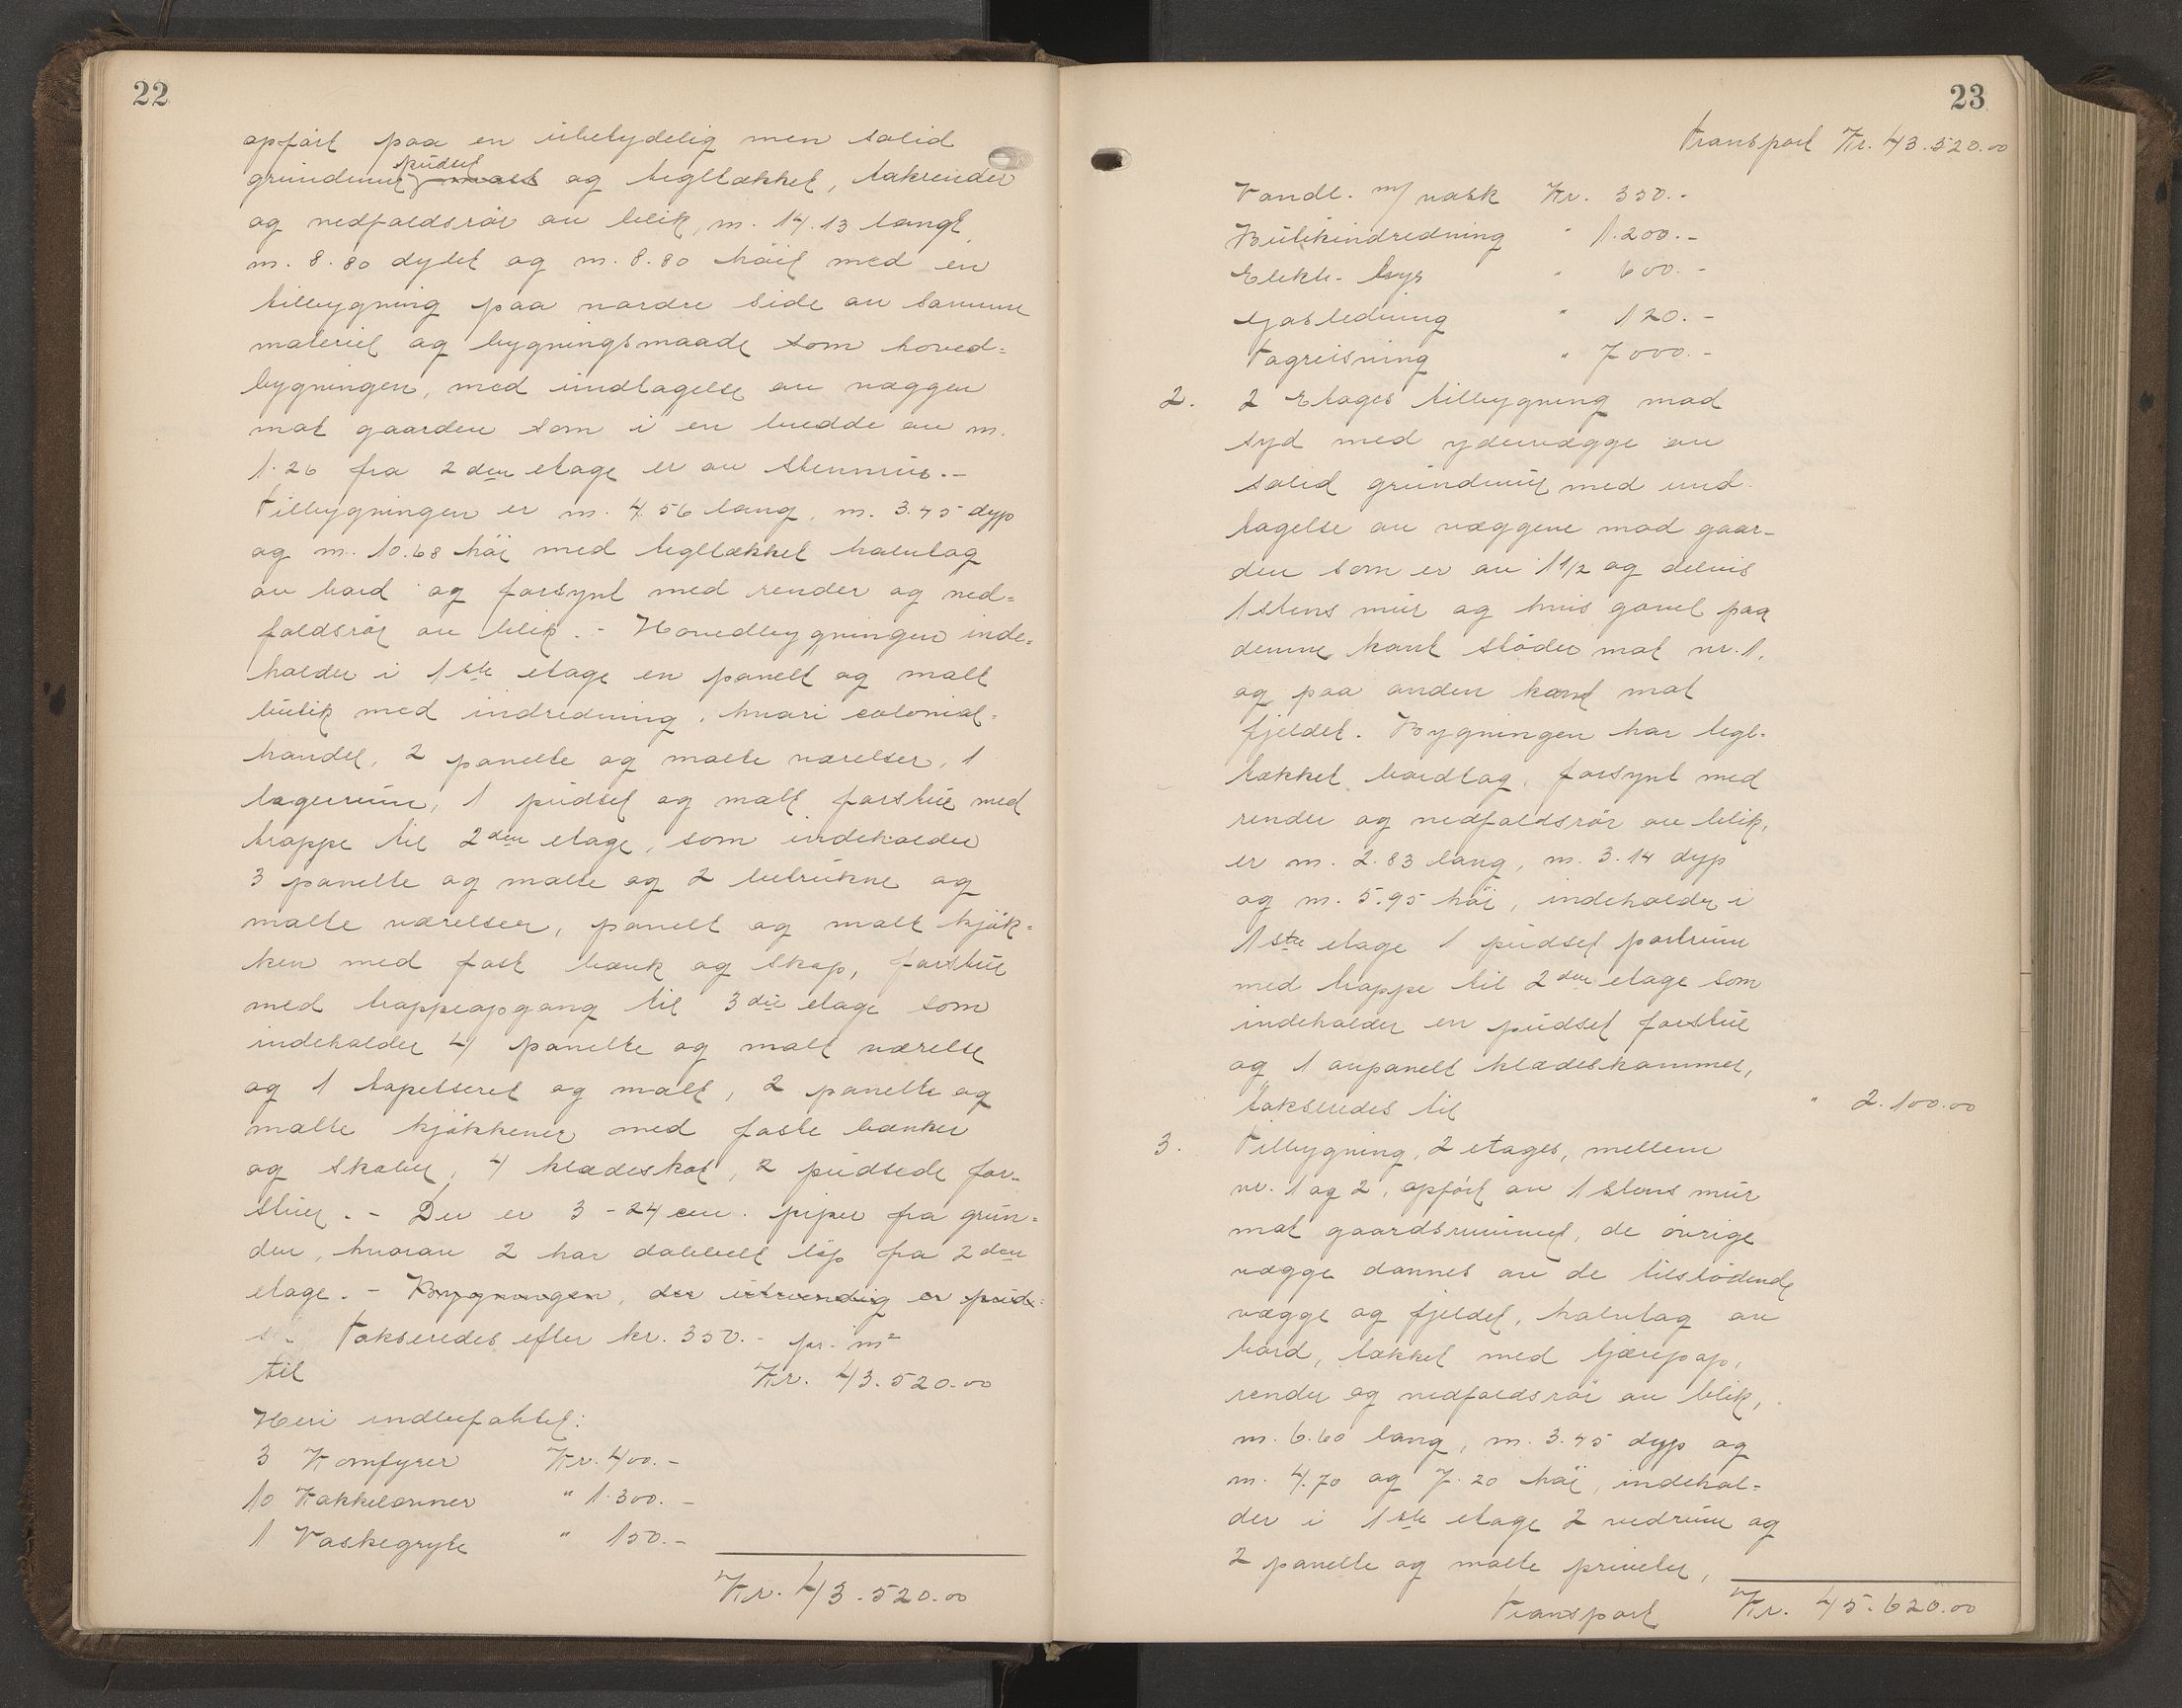 22
opført paa en ubetydelig men solid
grundmur, pudset malt og tegltækket, takrender
og nedfaldsrör av blik, m. 14.13 langt,
m. 8.80 dybt og m. 8.80 höit med en
tilbygning paa nordre side av samme
materiel og bygningsmaade som hoved-
bygningen, med undtagelse av væggen
mot gaarden som i en bredde av m.
1.26 fra 2den etage er av stenmur.-
Tilbygningen er m. 4.56 lang, m. 3.45 dyp
og m. 10.68 höi med tegltækket halvtag
av bord og forsynt med render og ned-
faldsrör av blik. - Hovedbygningen inde-
holder i 1ste etage en panelt og malt
butik med indredning, hvori colonial-
handel, 2 panelte og malte værelser, 1
lagerrum, 1 pudset og malt forstue med
trappe til 2den etage, som indeholder
3 panelte og malte og 2 betrukne og
malte værelser, panelt og malt kjök-
ken med fast bænk og skap, forstue
med trappeopgang til 3die etage som
indeholder 4 panelte og malt værelse
og 1 tapetseret og malt, 2 panelte og
malte kjökkener med faste bænker
og skaber, 4 klædeskot, 2 pudsede for-
stuer. - Der er 3 - 24 cm. piper fra grun-
den, hvorav 2 har dobbelt löp fra 2den
etage. - Bygningen, der utvendig er pud-
s. Takseredes efter kr. 350.- pr. m²
til Kr. 43.520.00
Heri indbefattet:
3 Komfyrer Kr. 400.-
10 Kakkelovner " 1.300.-
1 Vaskegryte " 150.-
Kr. 43.520.00
23
Transport Kr. 43.520.00
Vandl. m/ vask Kr. 350.-
Butikindredning " 1.200.-
Elektr. lys " 600.-
Gasledning " 120.-
Tagreisning " 7000.-
2. 2 Etages tilbygning mod
syd med ydervægge av
solid grundmur med und-
tagelse av væggene mod gaar-
den som er av 1 1/2 og delvis
1 stens mur og hvis gavel paa
denne kant stöder mot nr. 1,
og paa anden kant mot
fjeldet. Bygningen har tegl-
tækket bordtag, forsynt med
render og nedfaldsrör av blik,
er m. 2.83 lang, m. 3.14 dyp
og m. 5.95 höi, indeholder i
1ste etage 1 pudset portrum
med trappe til 2den etage som
indeholder en pudset forstue
og 1 avpanelt klædeskammer,
takseredes til " 2.100.00
3. Tilbygning, 2 etages, mellem
nr. 1 og 2, opfört av 1 stens mur
mot gaardsrummet, de övrige
vægge dannes av de tilstödende
vægge og fjeldet, halvtag av
bord, tækket med tjærepap,
render og nedfaldsrör av blik,
m. 6.60 lang, m. 3.45 dyp og
m. 4.70 og 7.20 höi, indehol-
der i 1ste etage 2 vedrum og
2 panelte og malte priveter,
Transport Kr. 45.620.00